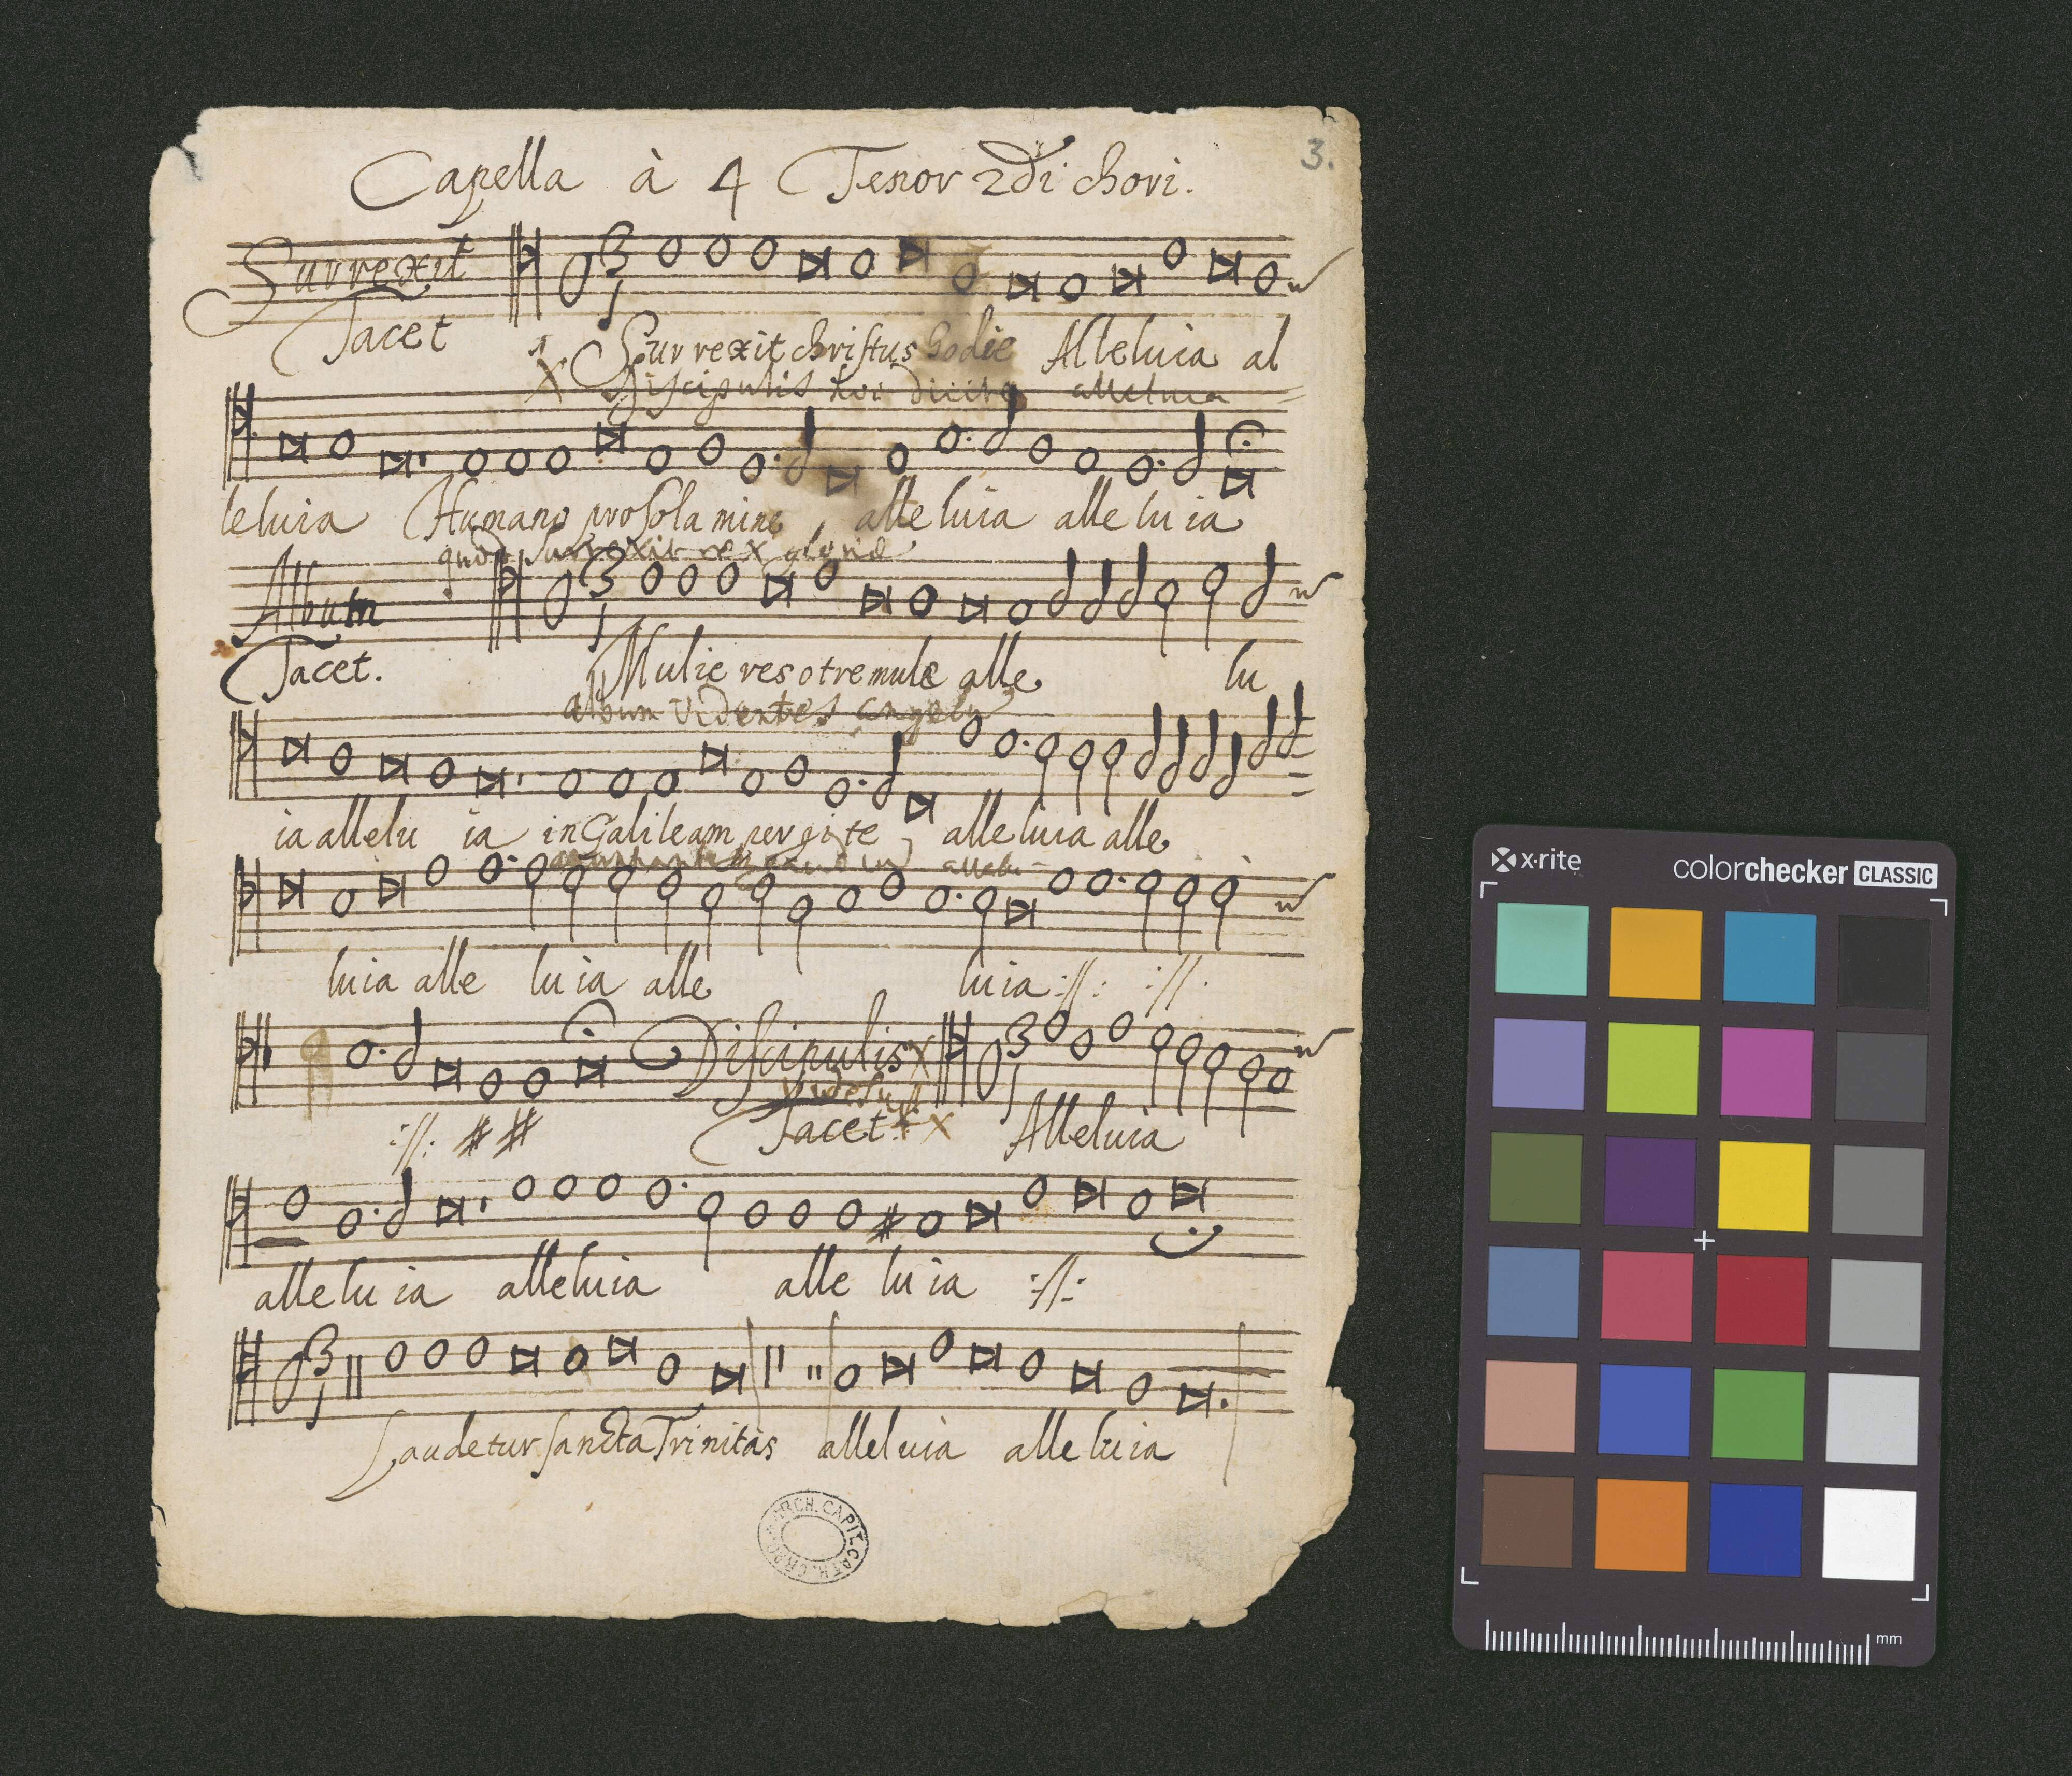 3.
Capella à 4 Tenor 2di chori.
Surrexit
Tacet
Surrexit christus hodie Alleluia al
Discipulis hoc dicite alleluia
leluia Humano pro solamine, alleluia alleluia
quod surrexit rex gloriæ
Album
Tacet.
Mulieres o tremulæ alle lu
album videntes angelu
ia allelu ia in Galileam pergite, alleluia alle
allelu
luia alle luia alle luia :||: :||:
:||: # #
Discipulis X
Tacet. X
Alleluia
alleluia alleluia alle luia :||:
Laudetur sancta Trinitas alleluia alleluia
ARCH. CAPIT. CATH. CRAC.
x·rite
colorchecker CLASSIC
mm